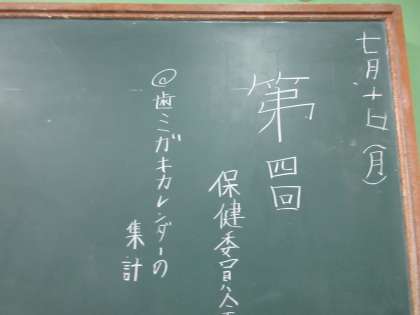 七月十日（月）
第四回
保健委員会
◎歯ミガキカレンダーの
集計